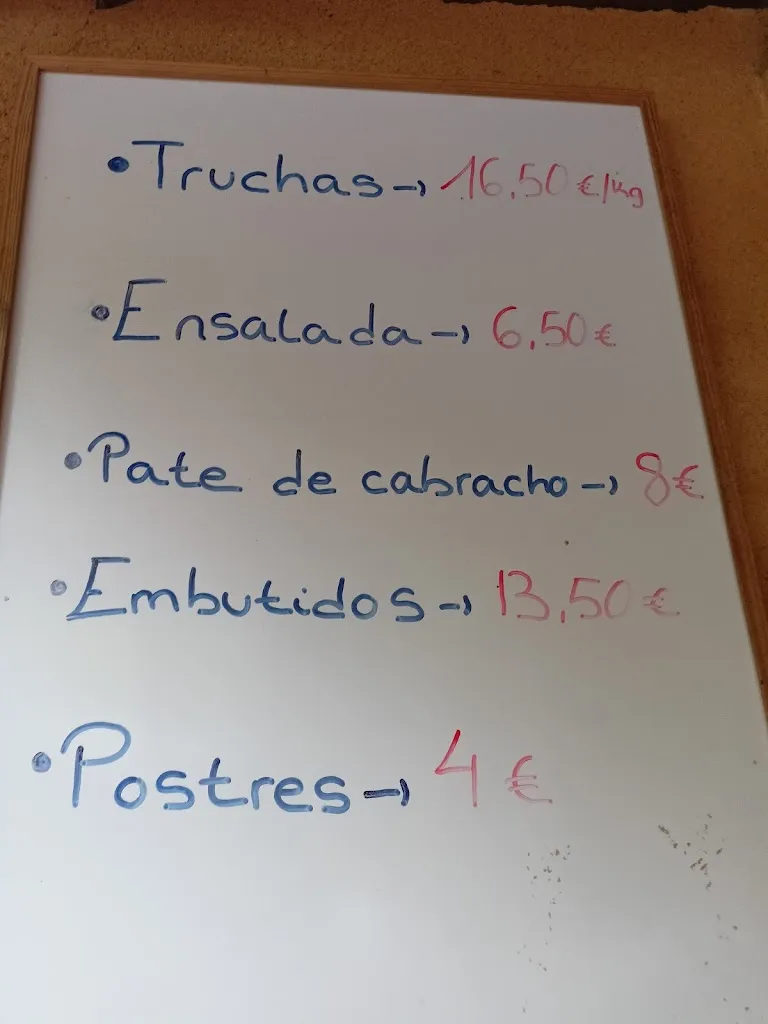 • Truchas → 16,50 €/kg
• Ensalada → 6,50 €
• Pate de cabracho → 8 €
• Embutidos → 13,50 €
• Postres → 4 €